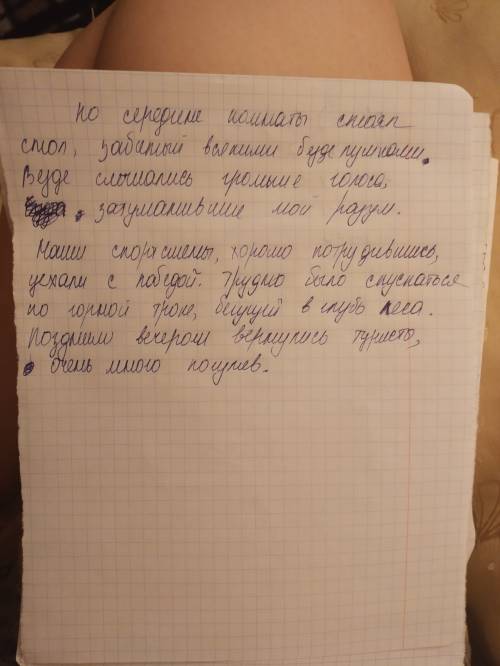 По середине комнаты стоял
стол, забатый всякими безделушками.
Везде слышались громкие голоса,
затуманившие мой разум.
Наши спортсмены, хорошо потрудившись,
уехали с победой. Трудно было спускаться
по горной тропе, бегущей в глубь леса.
Поздним вечером вернулись туристы,
очень много покупев.